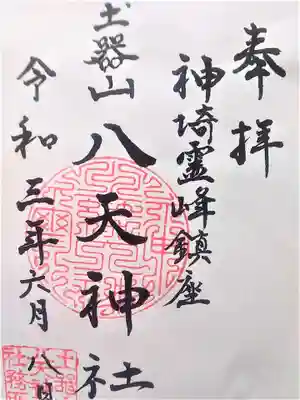 奉拝
神埼霊峰鎮座
土器山八天神社
令和三年六月八日